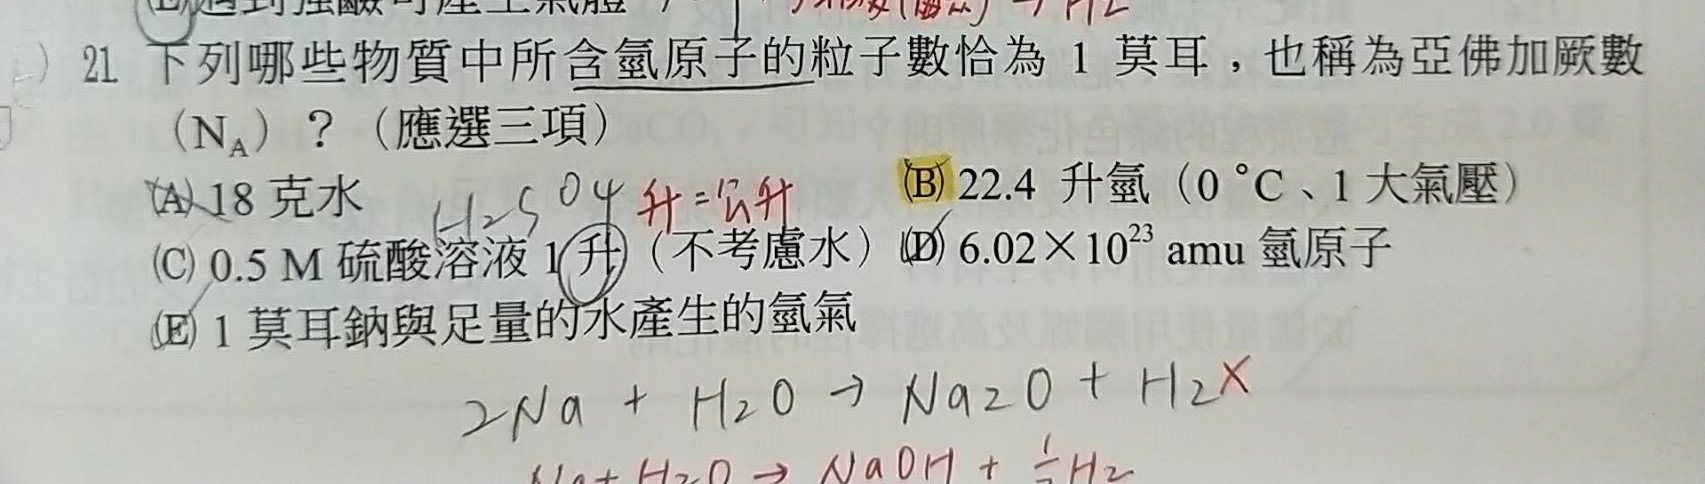 21 下列哪些物質中所含氫原子的粒子數恰為 1 莫耳,也稱為亞佛加厥數
(N_A)?(應選三項)
(A) 18 克水 H2SO4 升=公升 (B) 22.4 升氫(0 °C、1 大氣壓)
(C) 0.5 M 硫酸溶液 1 升(不考慮水) (D) 6.02×10²³ amu 氫原子
(E) 1 莫耳鈉與足量的水產生的氫氣
2Na + H2O → Na2O + H2 X
Na + H2O → NaOH + ½H2